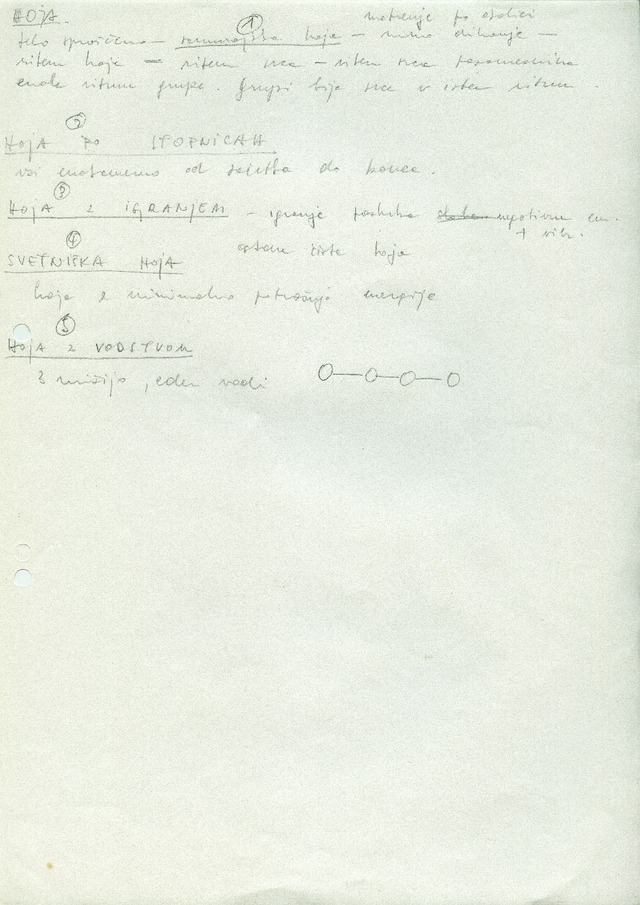 HOJA.
①
telo sproščeno - samurajska hoja - mirno dihanje -
ritem hoje - ritem srca - ritem srca posameznika
enak ritmu grupe. Grupi bije srce v istem ritmu.
②
HOJA PO STOPNICAH
vsi enakomerno od začetka do konca.
③
HOJA Z IGRANJEM - igranje negativn en.
+ vibr.
④
ostane čista hoja
SVETNIŠKA HOJA
hoja z minimalno potrošnjo energije
⑤
HOJA Z VODSTVOM
3 mižijo, eden vodi